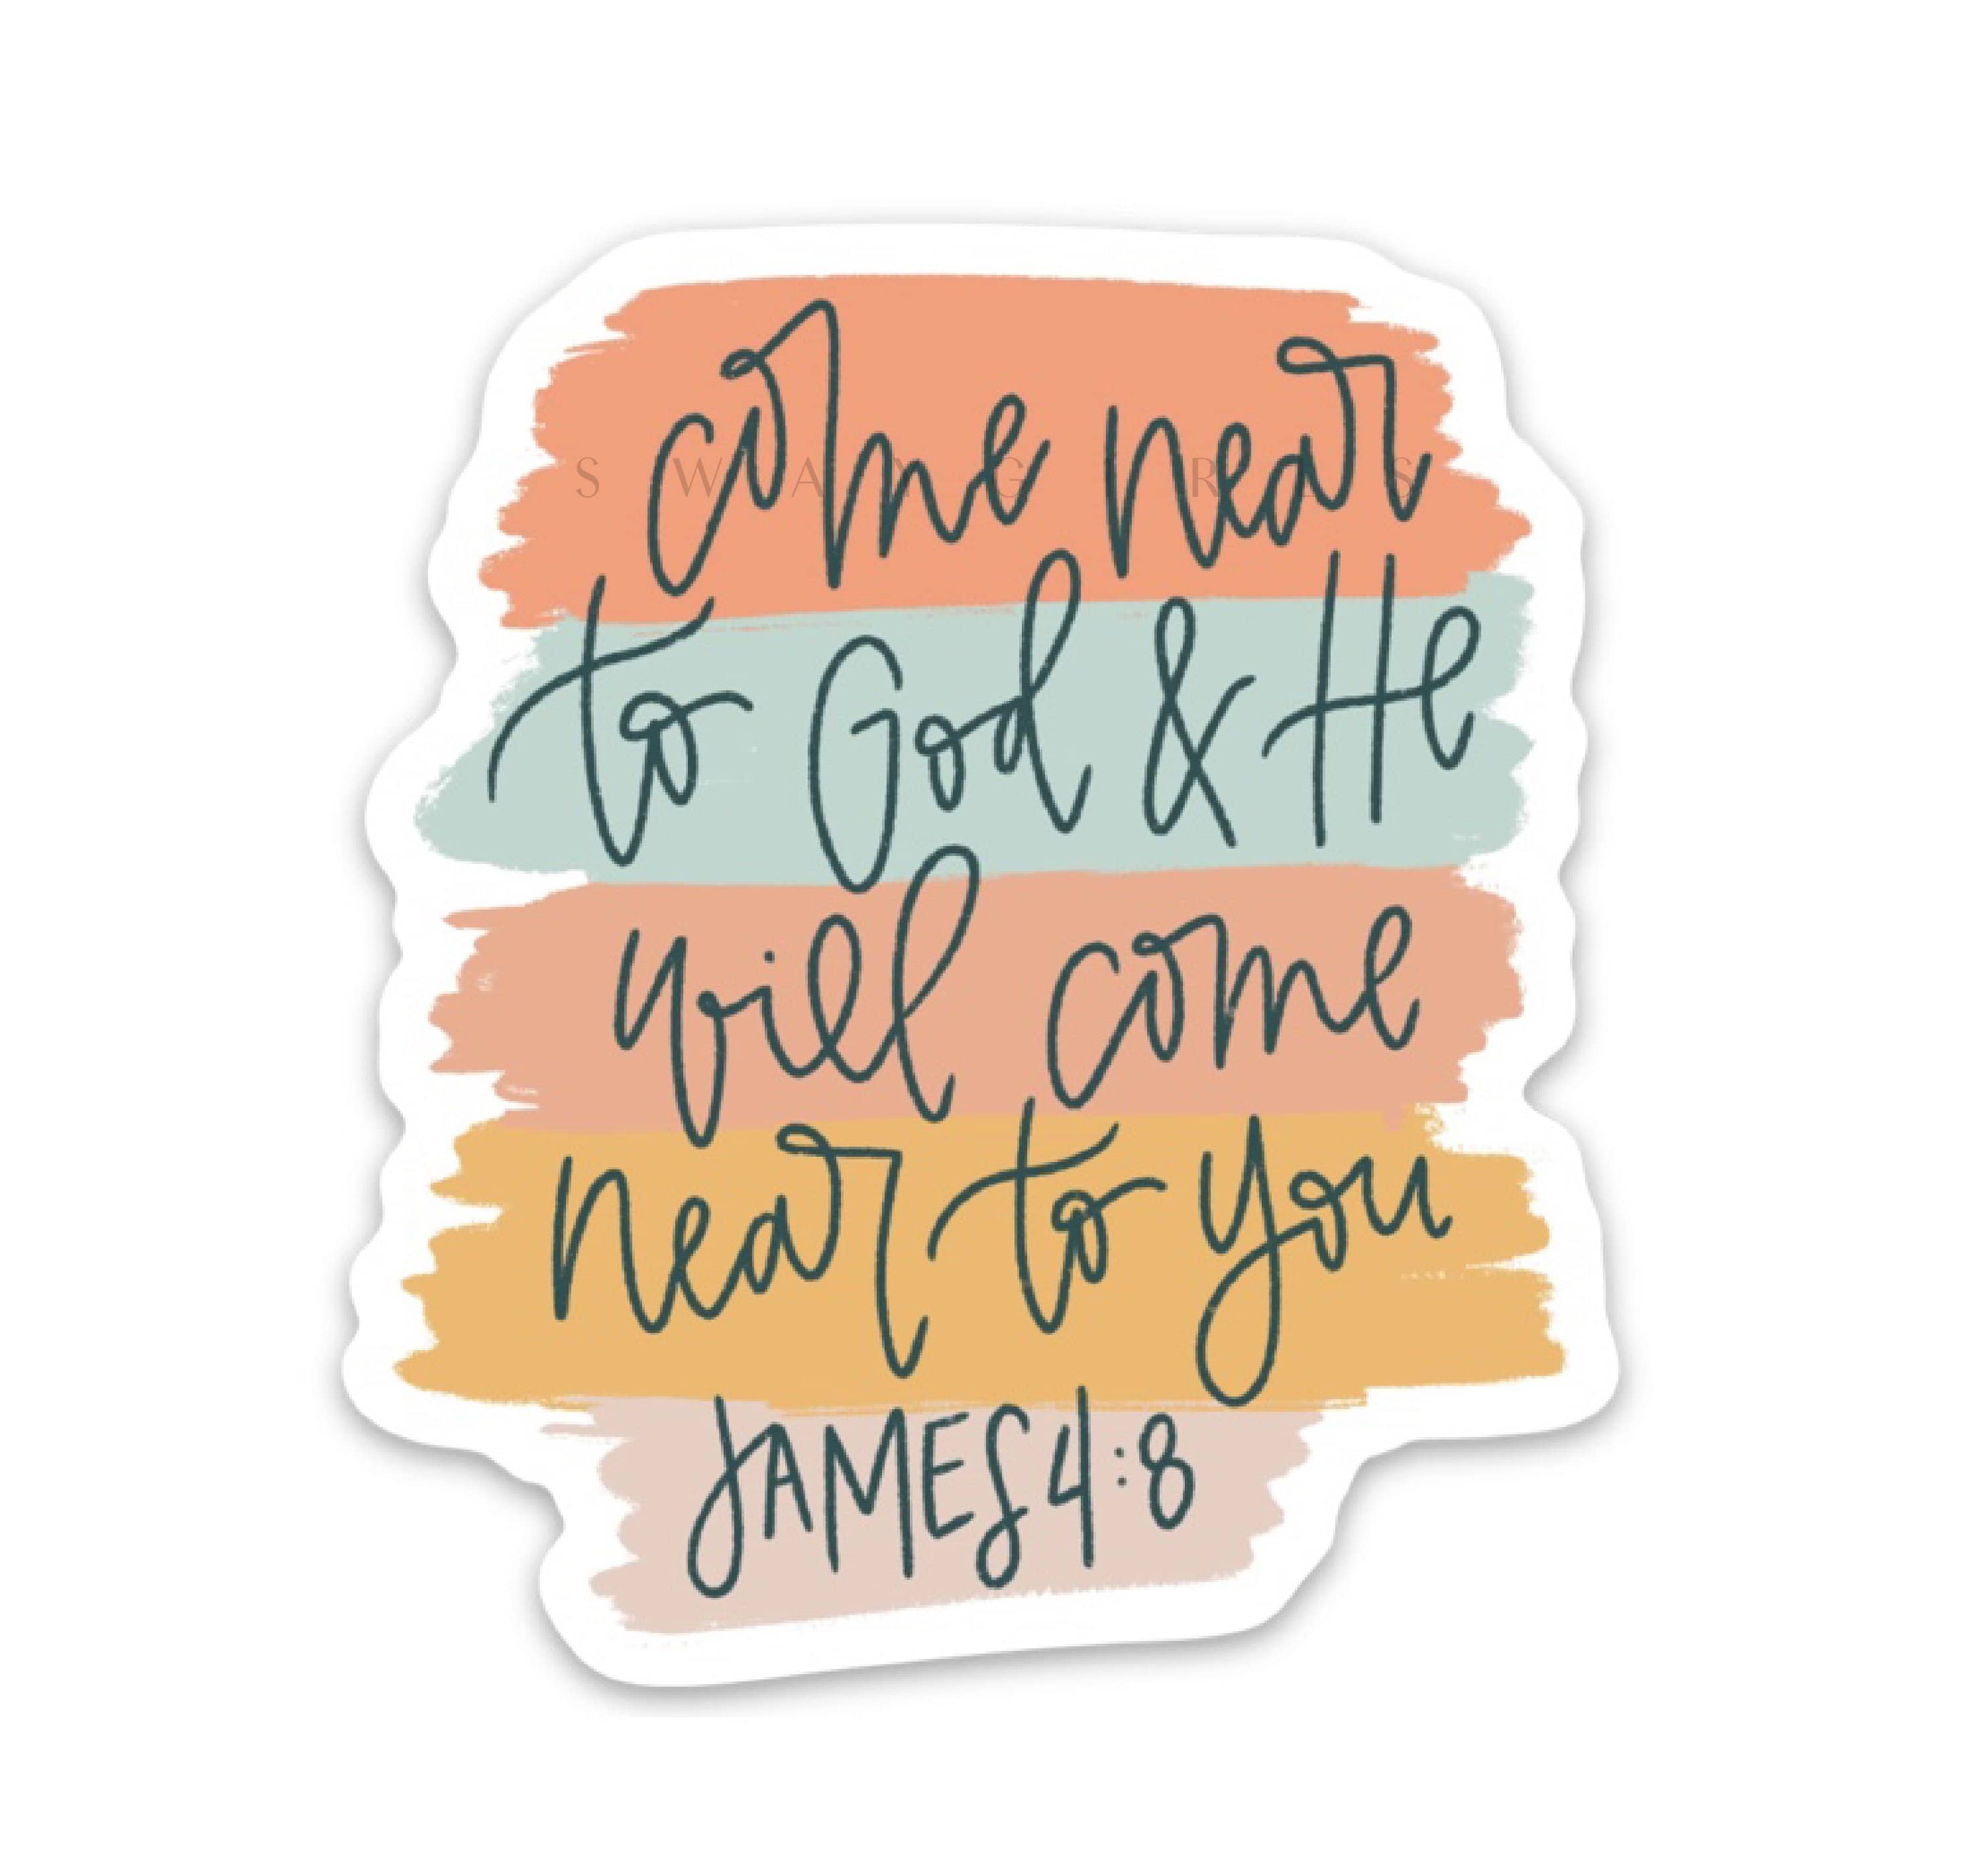 come near
S W A Y G R L S
to God & He
will come
near to you
JAMES 4:8